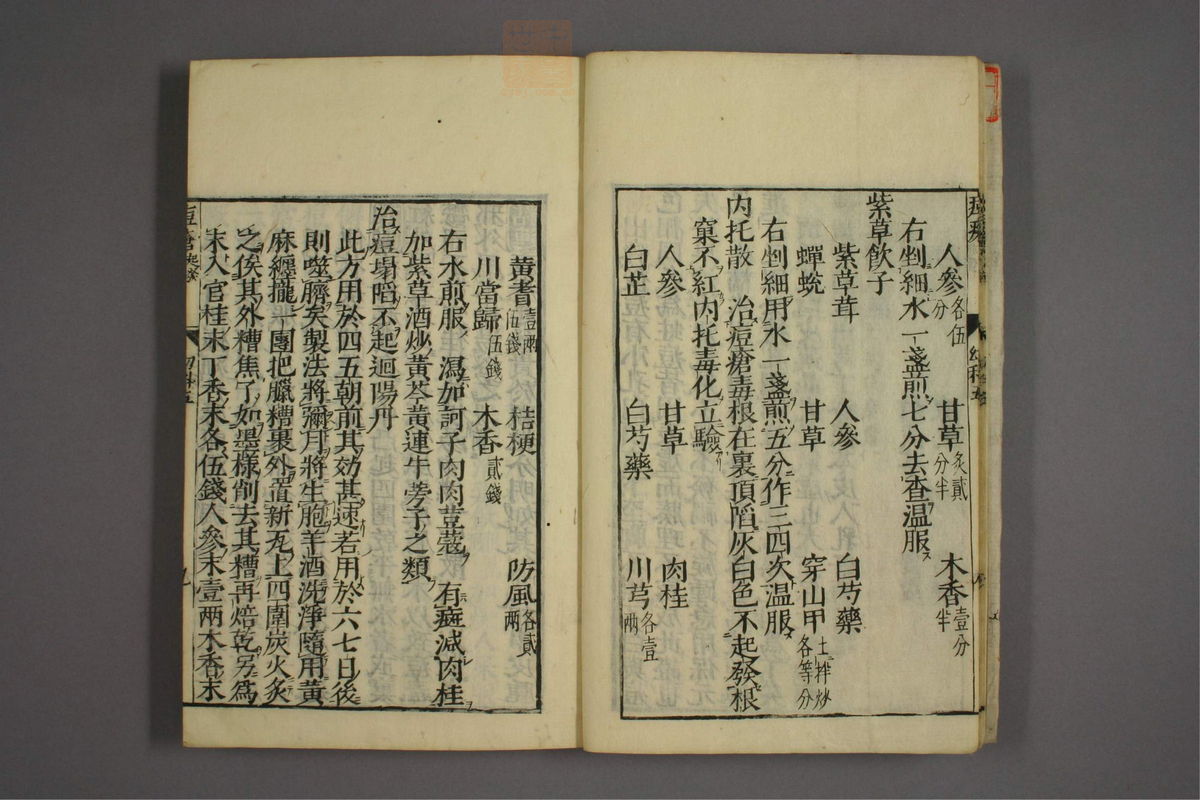 人參各伍分 甘草炙貳分半 木香壹分半
右剉細水一盞煎七分去查温服
紫草飲子
紫草茸 人參 白芍藥
蟬蛻 甘草 穿山甲土拌炒各等分
右剉細用水一盞煎五分作三四次温服
内托散 治痘瘡毒根在裏頂陷灰白色不起發根
窠不紅内托毒化立驗
人參 甘草 肉桂
白芷 白芍藥 川芎各壹兩
黃耆壹兩伍錢 桔梗 防風各貳兩
川當歸伍錢 木香貳錢
右水煎服 瀉加訶子肉肉荳蔻 有癍減肉桂
加紫草酒炒黃芩黃連牛蒡子之類
治痘塌陷不起迴陽丹
此方用於四五朝前其効甚速若用於六七日後
則噬臍矣製法將彌月將生胞羊酒洗淨隨用黃
麻纏攏一團把臘糟裹外置新瓦上四圍炭火炙
之俟其外糟焦了如墨樣削去其糟再焙乾另爲
末入官桂末丁香末各伍錢人參末壹兩木香末
幼科五